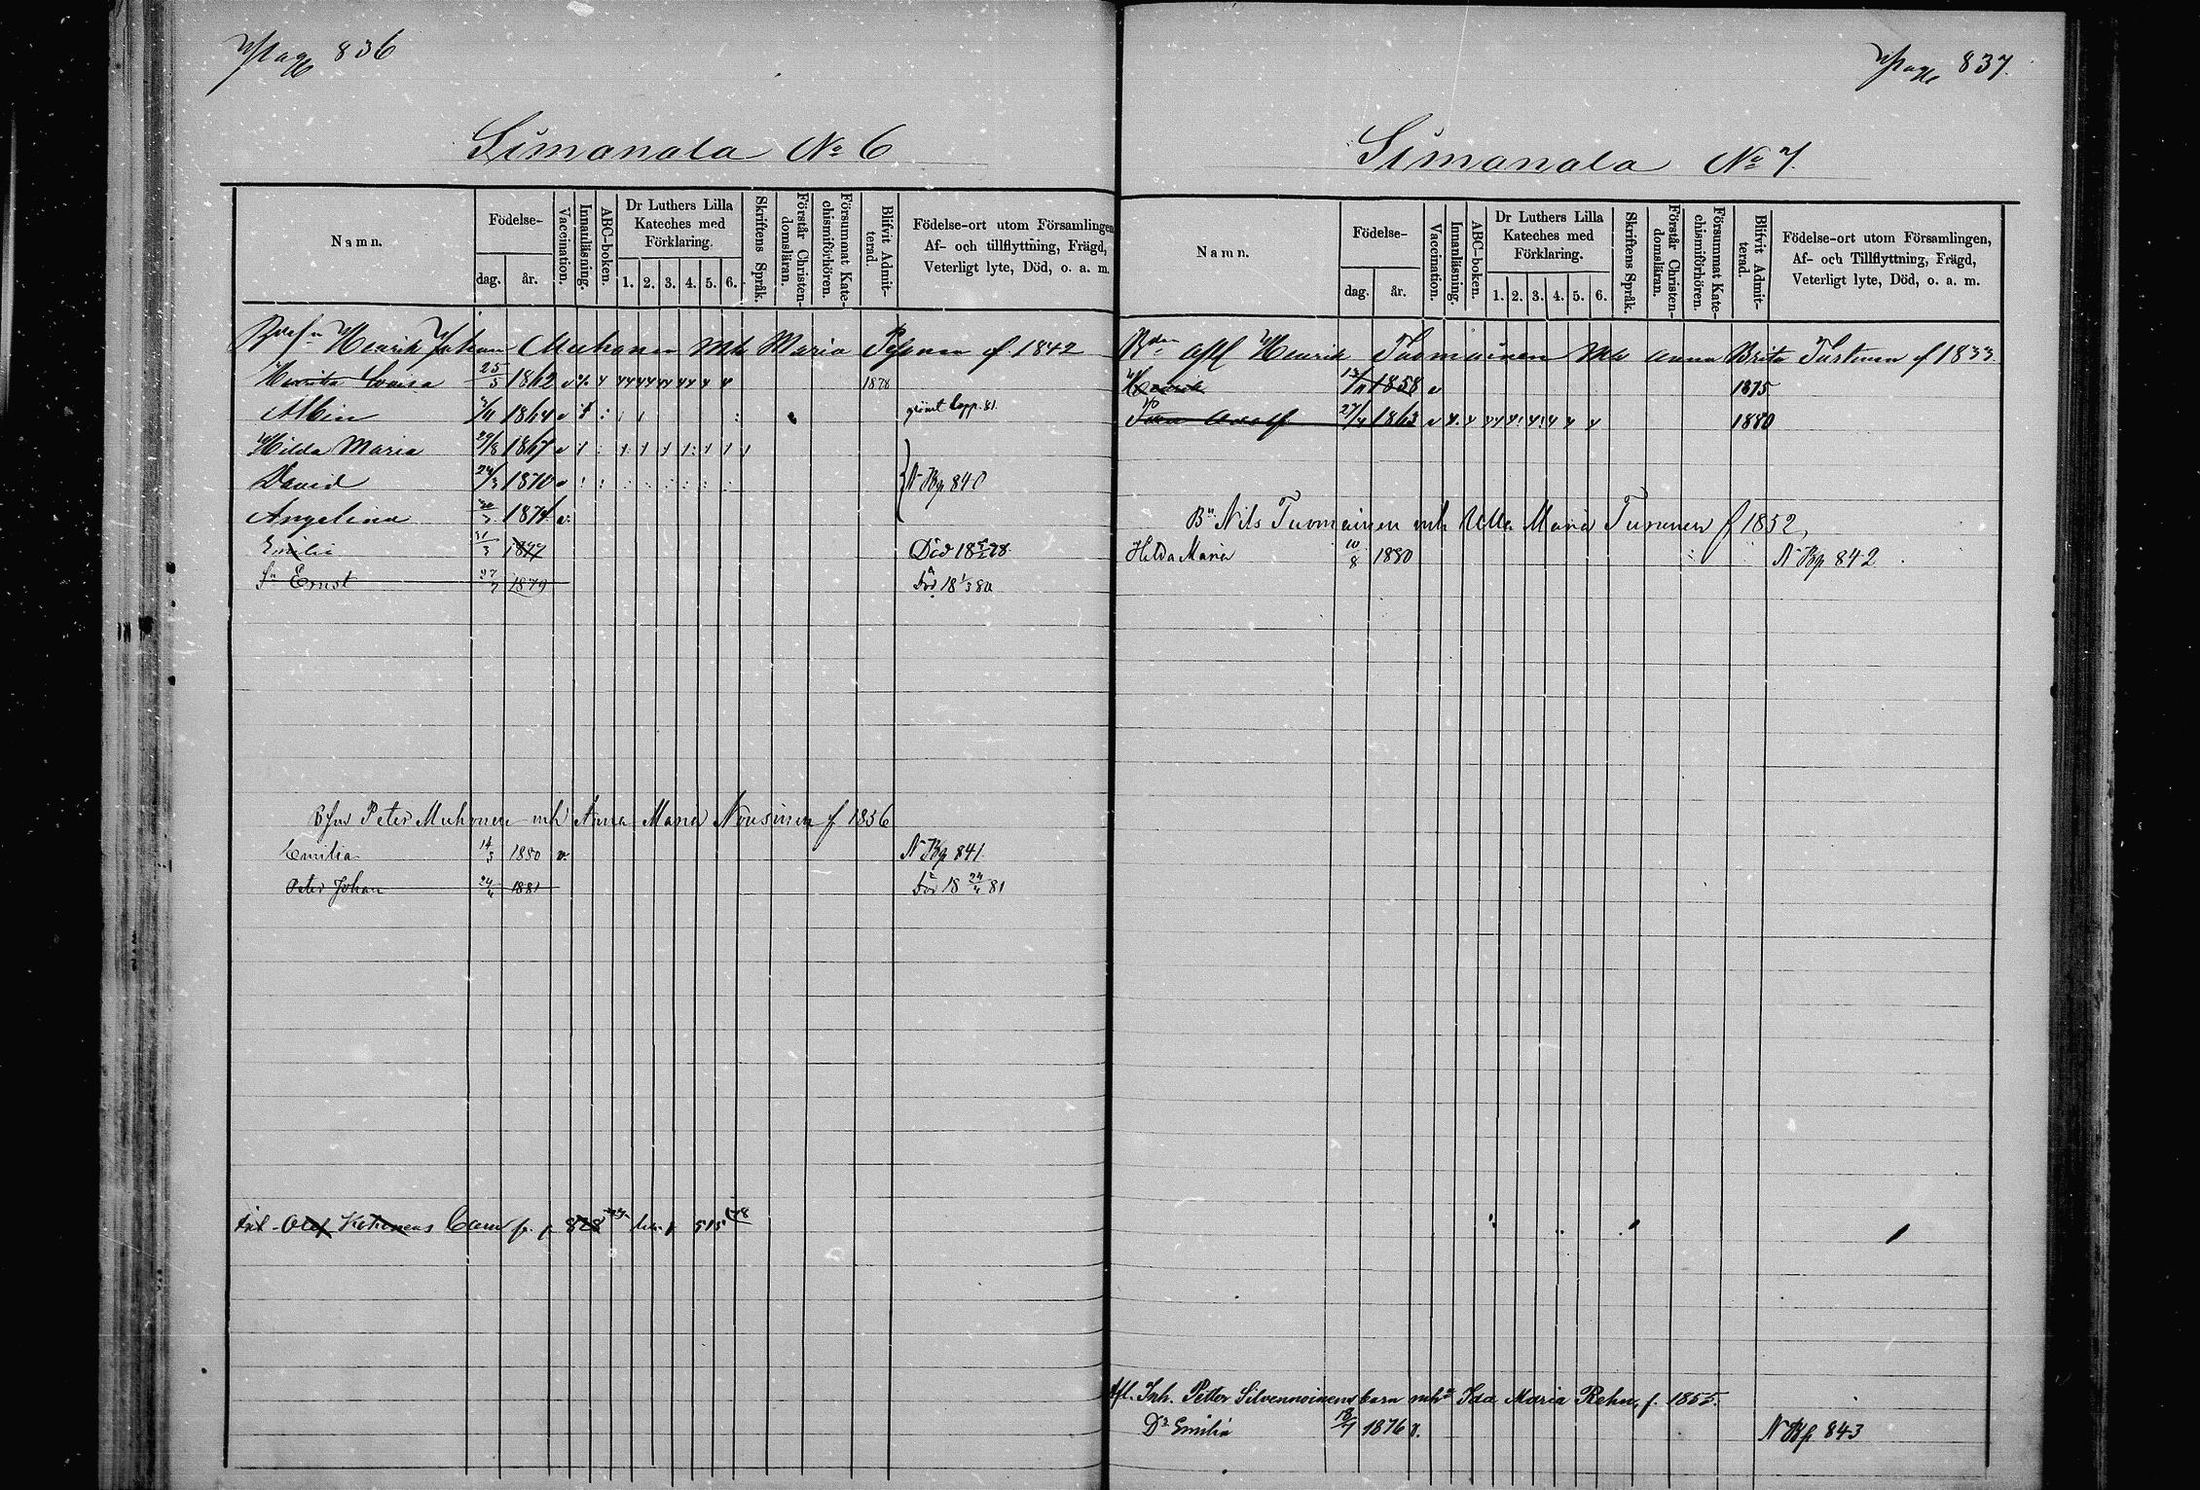 Pag 836
Simanala No 6
Namn.
Födelse-
dag.
år.
Vaccination.
Innanläsning.
ABC-boken.
Dr Luthers Lilla
Kateches med
Förklaring.
1. 2. 3. 4. 5. 6.
Skriftens Språk.
Förstår Christen-
domsläran.
Försummat Kate-
chismiförhören.
Blifvit Admit-
terad.
Födelse-ort utom Församlingen
Af- och tillflyttning, Frägd,
Veterligt lyte, Död, o. a. m.
Henrik Johan Muhonen Mh Maria f 1842
Lovisa 25/5 1862 v 1878
Albin 1864 v
Hilda Maria 29/8 1867 v
David 1870 v N Bp 840
Angelina 1874 v
Emilia 31/3 1877 Död 18 78
Sn Ernst 27/7 1879 Död 18 1/3 80
Peter Muhonen mh Anna Maria Nousinen f 1856
Emilia 14/3 1880 v. N Bp 841
Peter Johan 24/4 1881 Död 18 24/4 81
Olof Barn fr. p 828 p 515
Pag 837.
Simanala No 7.
Namn.
Födelse-
dag.
år.
Vaccination.
Innanläsning.
ABC-boken.
Dr Luthers Lilla
Kateches med
Förklaring.
1. 2. 3. 4. 5. 6.
Skriftens Språk.
Förstår Christen-
domsläran.
Försummat Kate-
chismiförhören.
Blifvit Admit-
terad.
Födelse-ort utom Församlingen,
Af- och Tillflyttning, Frägd,
Veterligt lyte, Död, o. a. m.
Henrik Tuomainen Mh Anna Brita Turtinen f 1833
Henrik 1858 v 1875
Adolf 27/4 1863 v 1880
Bn Nils Tuomainen mh Ulla Maria Turunen f 1852,
Hilda Maria 10/8 1880 N Bp 842
Afl. Inh. Petter Silvennoinens barn mhr Ida Maria Rehn, f. 1855.
Dr Emilia 1876 v. N Bp 843